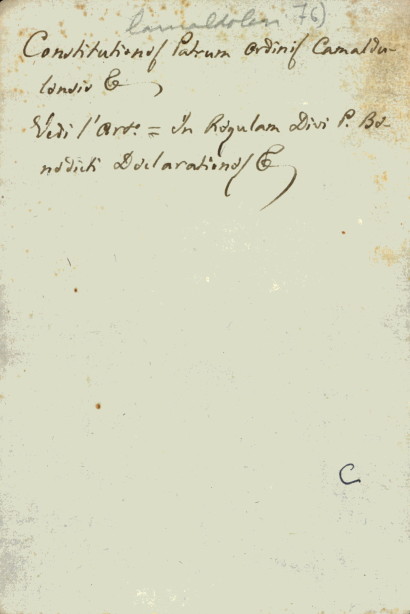 Camaldolesi 76)
Constitutiones Patrum Ordinis Camaldu-
lensis &
Vedi l'Art.º = In Regulam Divi P. Be-
nedicti Declarationes &
C